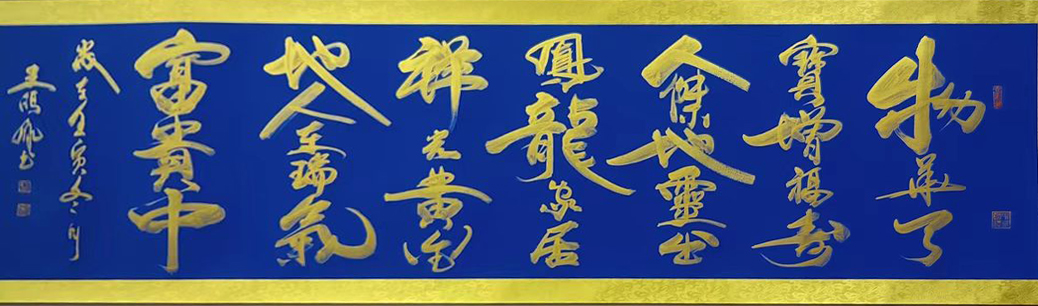 物華天
寶增福壽
人傑地靈出
鳳龍家居
祥光黃金
地人在瑞氣
富貴中
歲在壬寅冬月
王書